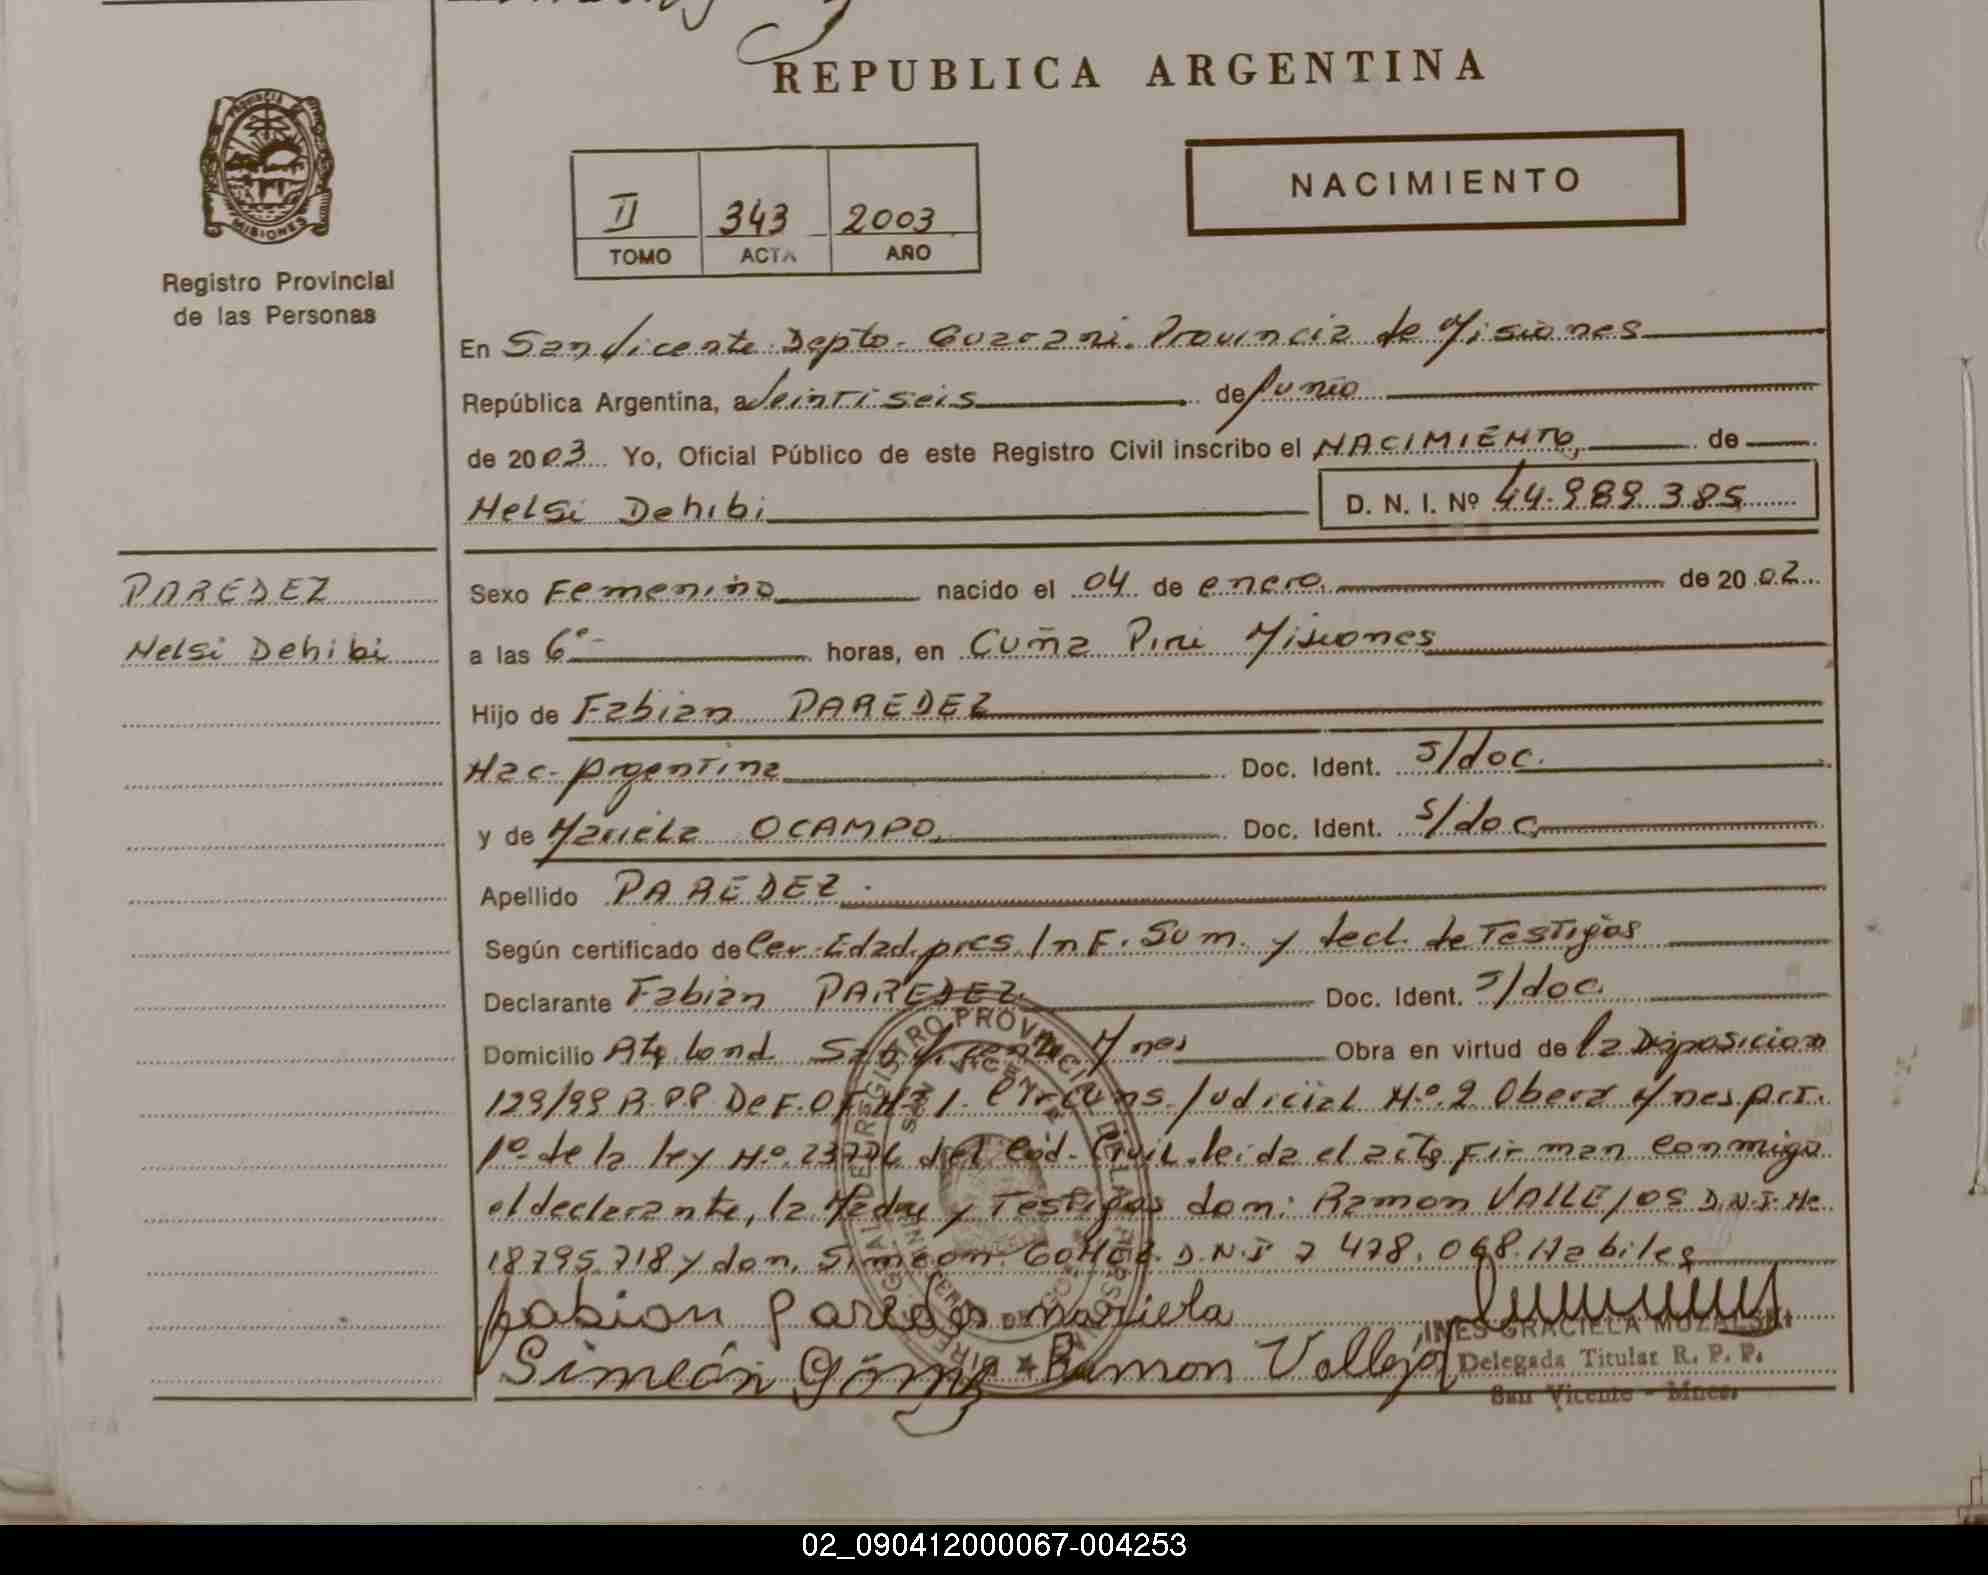 REPUBLICA ARGENTINA
PROVINCIA DE
MISIONES
Registro Provincial
de las Personas
II 343 2003
TOMO ACTA AÑO
NACIMIENTO
En San Vicente Depto. Guarani. Provincia de Misiones
República Argentina, a Veintiseis de Junio
de 2003 Yo, Oficial Público de este Registro Civil inscribo el NACIMIENTO, de
Nelsi Dehibi D. N. I. Nº 44.989.385
PAREDEZ
Nelsi Dehibi
Sexo Femenino nacido el 04 de enero de 2002
a las 6º horas, en Cuña Piru Misiones
Hijo de Fabian PAREDEZ
Nac. Argentina Doc. Ident. S/doc.
y de Mariela OCAMPO Doc. Ident. S/doc
Apellido PAREDEZ.
Según certificado de Cer. Edad. pres. Inf. Sum. y decl. de Testigos
Declarante Fabian PAREDEZ Doc. Ident. S/doc.
Domicilio San Vicente Mnes Obra en virtud de la Disposicion
129/99 R.P.P De F. Of Nº 1. Circuns. Judicial Nº 2 Obera Mnes Art.
1º de la ley Nº 23776 del Cod. Civil. leida el acta Firman Conmigo
el declarante, la Madre y Testigos don: Ramon VALLEJOS D.N.I. Nº
18795.718 y don. Simeon GOMEZ. D.N.I 7 478.068. Habiles
fabian Paredes mariela
Simeón Gómez Ramon Vallejo
INES GRACIELA
Delegada Titular R. P. P.
San Vicente - Mnes.
02_090412000067-004253